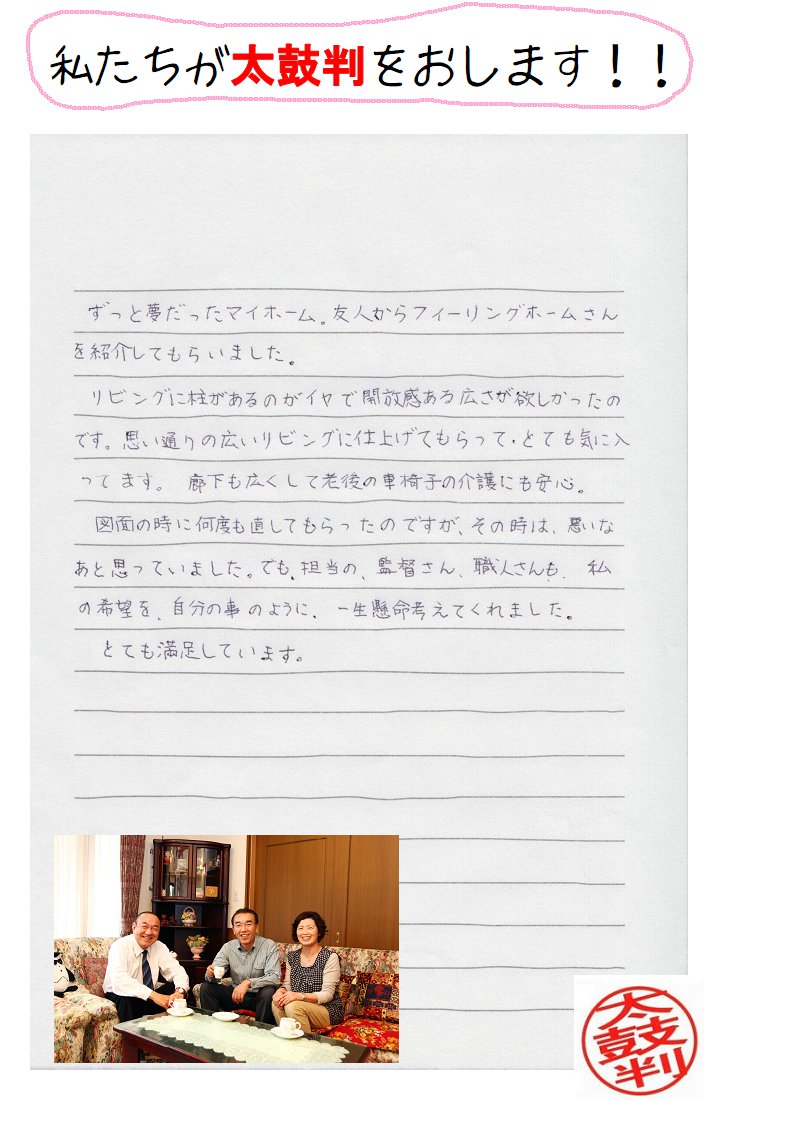 私たちが太鼓判をおします！！
ずっと夢だったマイホーム。友人からフィーリングホームさん
を紹介してもらいました。
リビングに柱があるのがイヤで開放感ある広さが欲しかったの
です。思い通りの広いリビングに仕上げてもらって、とても気に入
ってます。 廊下も広くして老後の車椅子の介護にも安心。
図面の時に何度も直してもらったのですが、その時は、悪いな
あと思っていました。でも、担当の、監督さん、職人さんも、私
の希望を、自分の事のように、一生懸命考えてくれました。
とても満足しています。
太鼓判